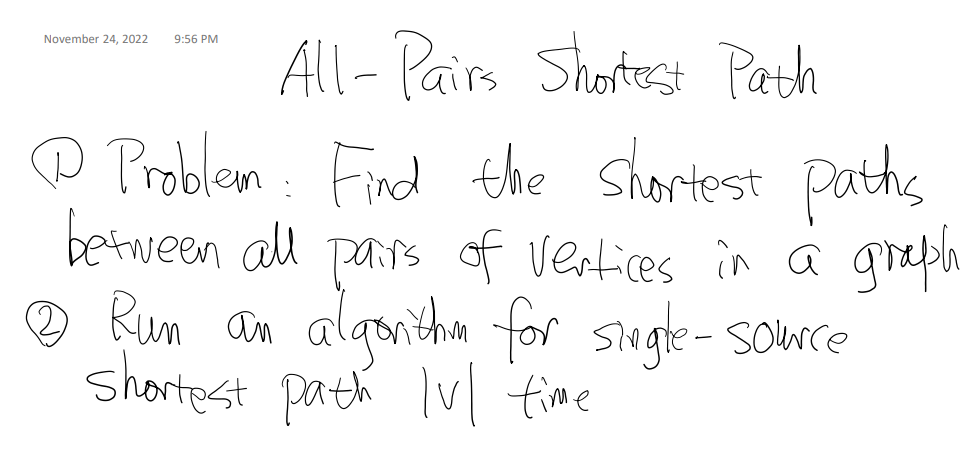 November 24, 2022 9:56 PM
All-Pairs Shortest Path
① Problem: Find the shortest paths
between all pairs of vertices in a graph
② Run an algorithm for single-source
shortest path |V| time